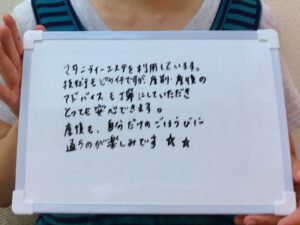 マタニティーエステを利用しています。
技術ももちろんですが、産前・産後の
アドバイスも丁寧にしていただき
とっても安心できます。
産後も、自分だけのごほうびに
通うのが楽しみです ☆ ☆